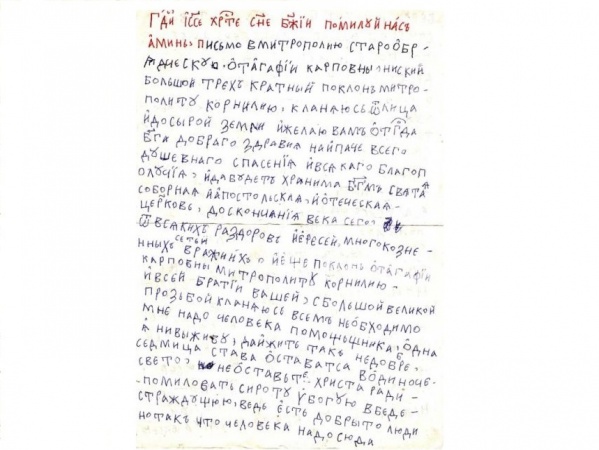 Гд҃и І҆с҃е хр҃те сн҃е бж҃їи помилуй на́съ
а҆минь, письмо вмитрополию старообр-
ядческую. ѿа҆гафїи карповны, ниский
большой трехъ кратный поклонъ митро-
политу корнилию, кланаюсь ѿлица
и҆досырой земли и҆желаю вамъ ѿгд҃а
бг҃а добраго здравиа наипаче всего
душевнаго спасенїа и҆всакаго благоп
олучїа, и҆дабудетъ хранима бг҃мъ свата
соборнаа и҆апостольскаа, и҆ѻ҆теческаа-
церковь, досконча́нїа века сего,
ѿвсакихъ раздоровъ и҆ересей, многокозне-
нныхъ сетей вражїихъ, и҆ е҆ще поклонъ ѿа҆гафїи
карповны митрополиту корнилию-
и҆всей братїи вашей, сбольшой великой
прозьбой кланаюсь всемъ неѻ҆бходимо
мне надо человека помошьника, ѻ҆дна
а҆ нивыживу, дайжить такъ недобре,
седмица става ѻ҆статса водиноче-
свето, неѻ҆ставьте христа ради-
-помиловать сироту у҆богую вбеде-
страждущюю, ведь е҆сть добрыто люди
нотакъ что человека надо сюда